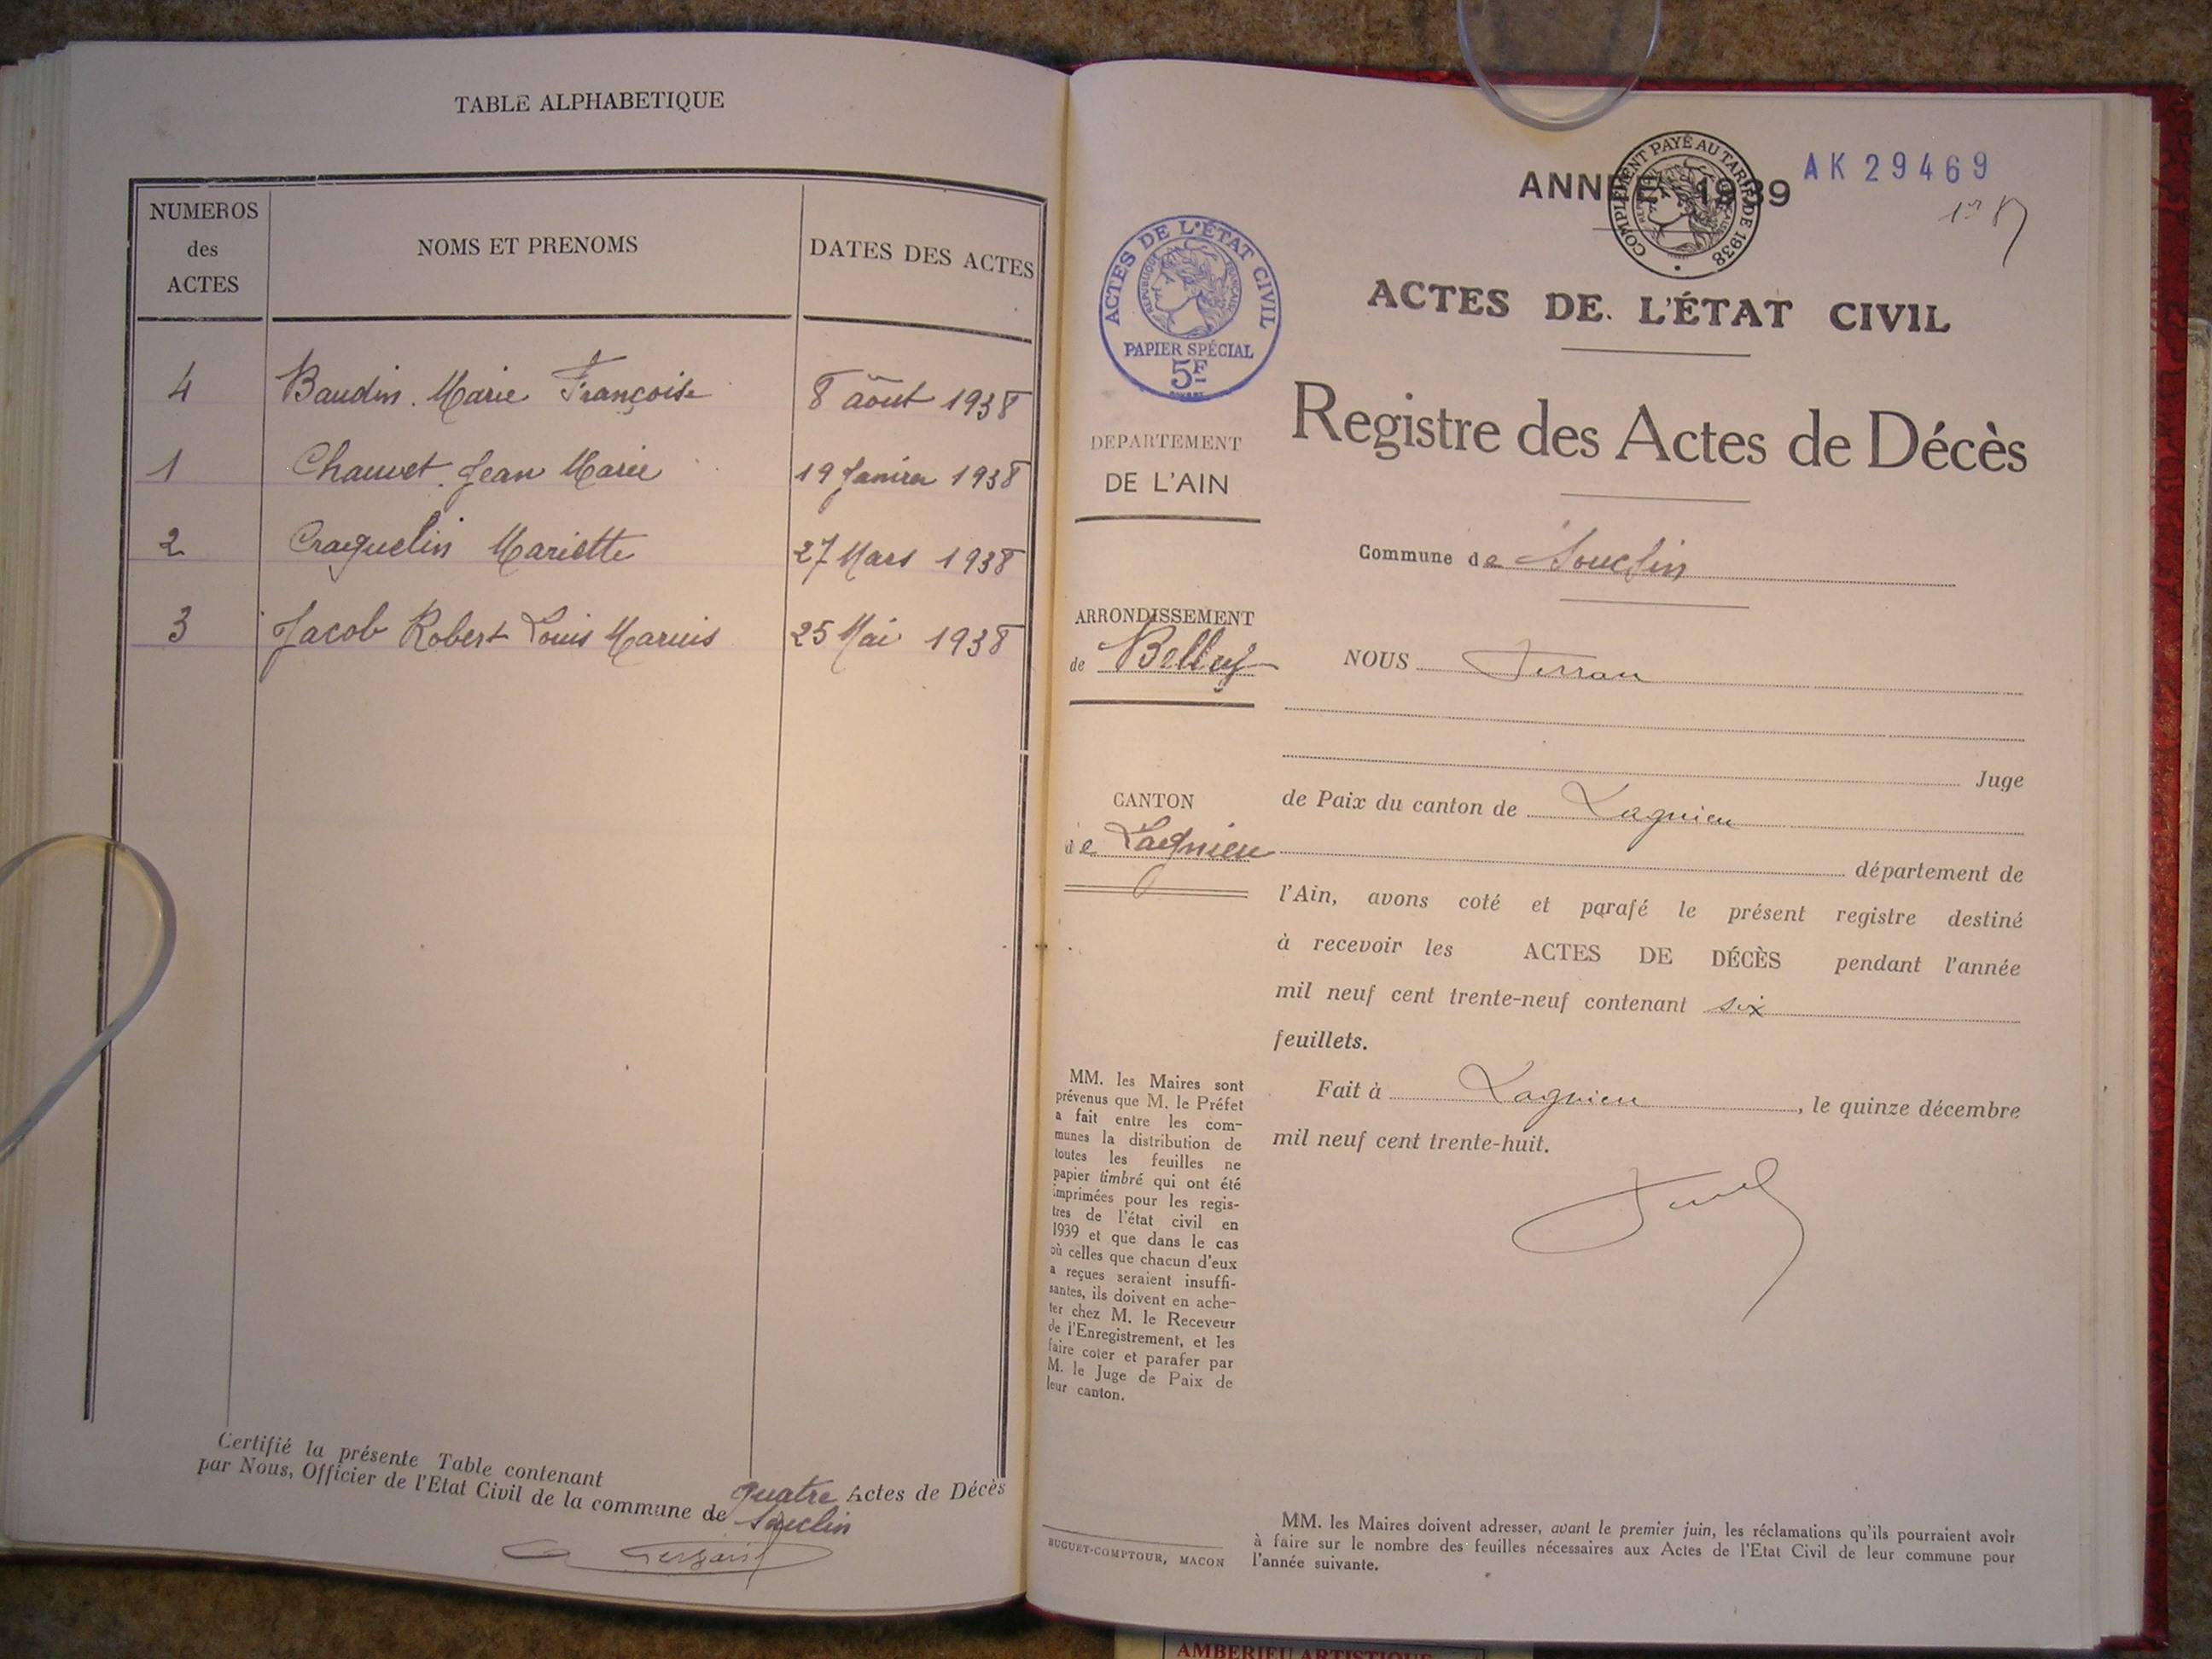 TABLE ALPHABETIQUE
NUMEROS
des
ACTES
NOMS ET PRENOMS
DATES DES ACTES
4 Baudin. Marie Françoise 8 août 1938
1 Chauvet. Jean Marie 19 Janvier 1938
2 Craquelin Mariette 27 Mars 1938
3 Jacob Robert Louis Marius 25 Mai 1938
Certifié la présente Table contenant quatre Actes de Décès
par Nous, Officier de l'Etat Civil de la commune de Souclin
ANNÉE 1939
COMPLÉMENT PAYÉ AU TARIF DE 1938
AK 29469
ACTES DE L'ÉTAT CIVIL
RÉPUBLIQUE FRANÇAISE
PAPIER SPÉCIAL
5F
ACTES DE L'ÉTAT CIVIL
Registre des Actes de Décès
DEPARTEMENT
DE L'AIN
Commune de Souclin
ARRONDISSEMENT
de Belley
NOUS
Juge
CANTON
de Lagnieu
de Paix du canton de Lagnieu
département de
l'Ain, avons coté et parafé le présent registre destiné
à recevoir les ACTES DE DÉCÈS pendant l'année
mil neuf cent trente-neuf contenant six
feuillets.
Fait à Lagnieu, le quinze décembre
mil neuf cent trente-huit.
MM. les Maires sont
prévenus que M. le Préfet
a fait entre les com-
munes la distribution de
toutes les feuilles ne
papier timbré qui ont été
imprimées pour les regis-
tres de l'état civil en
1939 et que dans le cas
où celles que chacun d'eux
a reçues seraient insuffi-
santes, ils doivent en ache-
ter chez M. le Receveur
de l'Enregistrement, et les
faire coter et parafer par
M. le Juge de Paix de
leur canton.
BUGUET-COMPTOUR, MACON
MM. les Maires doivent adresser, avant le premier juin, les réclamations qu'ils pourraient avoir
à faire sur le nombre des feuilles nécessaires aux Actes de l'Etat Civil de leur commune pour
l'année suivante.
AMBERIEU ARTISTIQUE